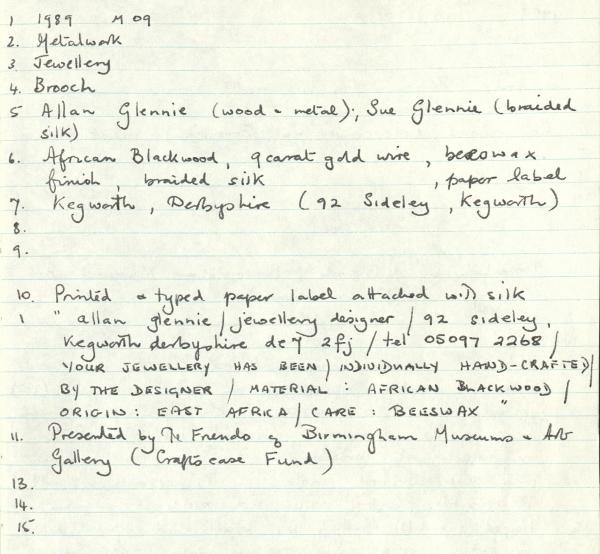 1 1989 M 09
2. Metalwork
3 Jewellery
4. Brooch
5 Allan Glennie (wood & metal); Sue Glennie (braided
silk)
6. African Blackwood, 9 carat gold wire, beeswax
finish, braided silk , paper label
7. Kegworth, Derbyshire (92 Sideley, Kegworth)
8.
9.
10. Printed & typed paper label attached with silk
1 " allan glennie / jewellery designer / 92 sideley,
Kegworth derbyshire de7 2fj / tel 05097 2268 /
YOUR JEWELLERY HAS BEEN / INDIVIDUALLY HAND-CRAFTED /
BY THE DESIGNER / MATERIAL : AFRICAN BLACKWOOD /
ORIGIN : EAST AFRICA / CARE : BEESWAX "
11. Presented by The Friends of Birmingham Museums & Art
Gallery (Craftscase Fund)
13.
14.
15.